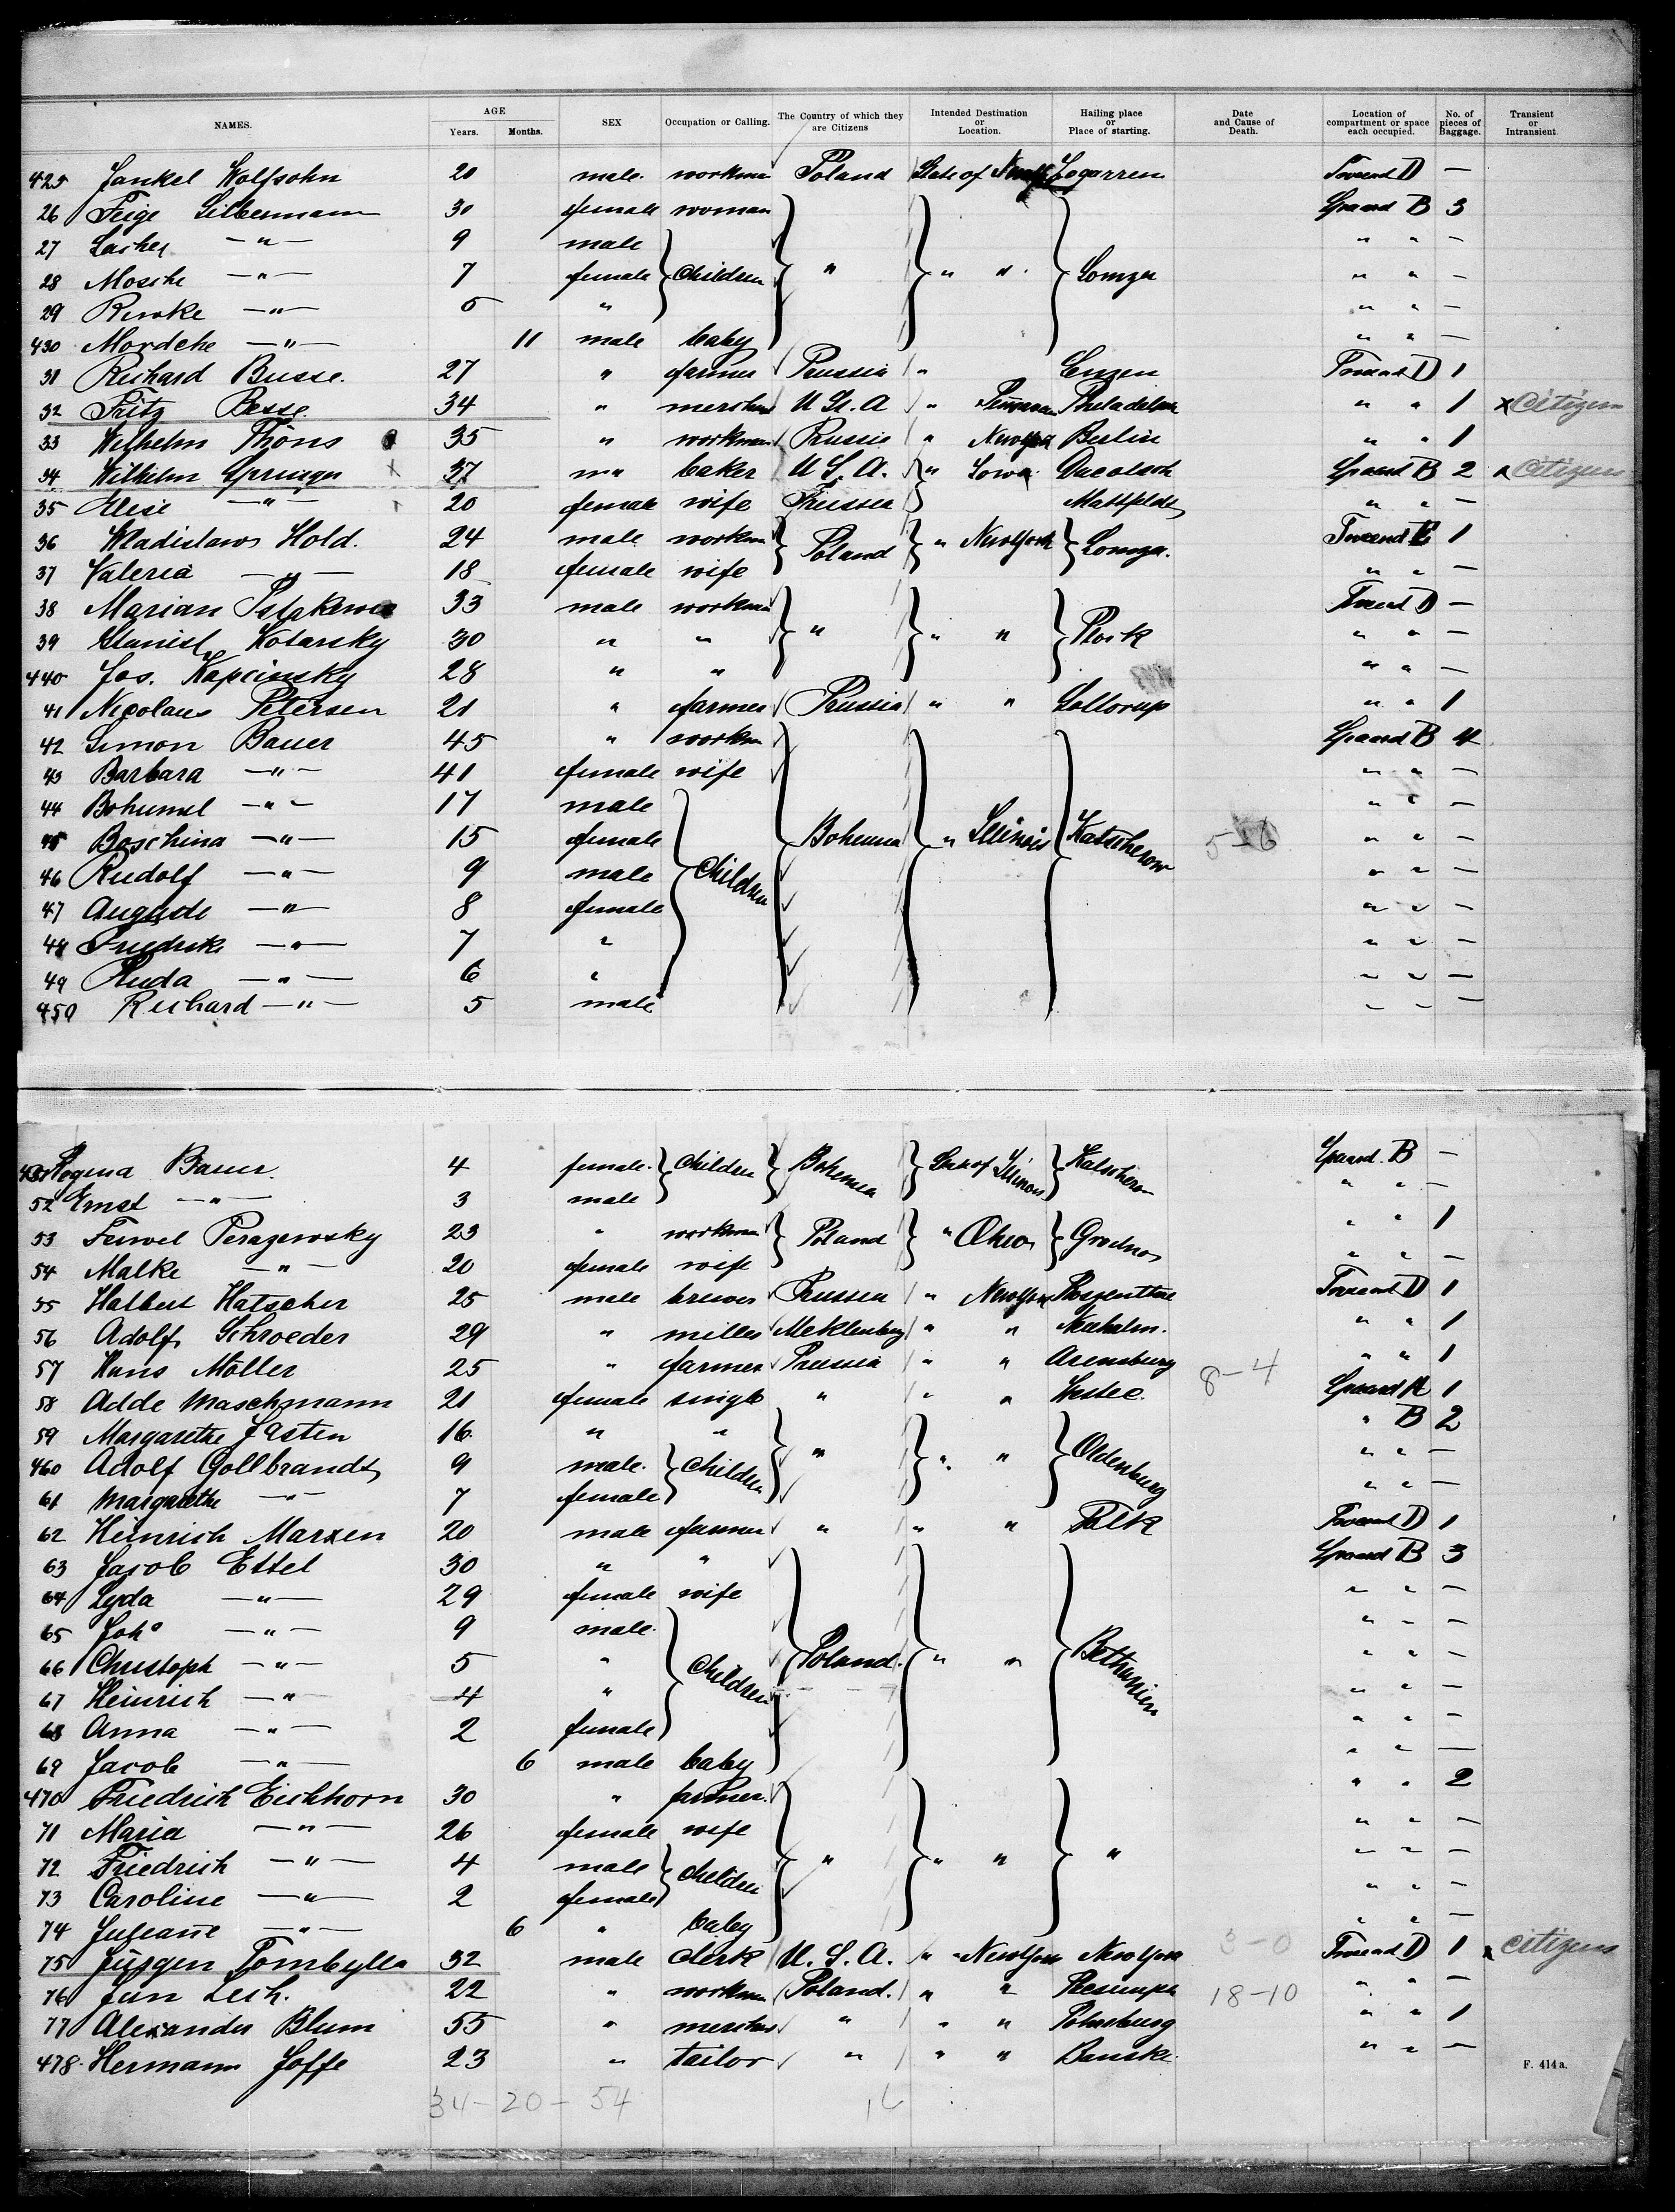 NAMES. AGE Years. Months. SEX Occupation or Calling. The Country of which they are Citizens Intended Destination or Location. Hailing place or Place of starting. Date and Cause of Death. Location of compartment or space each occupied. No. of pieces of Baggage. Transient or Intransient.
425 Jankel Wolfsohn 20 male workman Poland State of D —
26 Feige Silbermann 30 female woman B 3
27 Lasher —"— 9 male " " —
28 Mosche —"— 7 female children " " " Lomza " " —
29 Rewke —"— 5 " " " —
430 Mordche —"— 11 male baby " " —
31 Richard Busse. 27 " farmer Prussia " Enzen D 1
32 Fritz Besse. 34 " U St. A " Philadelphia " " 1 x citizen
33 Wilhelm Thöns 35 " workman Prussia " New York Berlin " " 1
34 Wilhelm Springer 37 " baker U. S. A. " Iowa B 2 x citizens
35 Elise —"— 20 female wife Prussia Mattfeldt " " —
36 Wladislaws Hold. 24 male workman Poland " New York Lomza. 1
37 Valeria —"— 18 female wife " " —
38 Marian 33 male workman D —
39 Stanisl. Kotarsky 30 " " " " " Plock " " —
440 Jos. Kapcinsky 28 " " " " —
41 Nicolaus Petersen 21 " farmer Prussia " " Lottorup " " 1
42 Simon Bauer 45 " workm B 4
43 Barbara —"— 41 female wife " " —
44 Bohumil —"— 17 male " " —
45 Boschina —"— 15 female Bohemia " Illinois Katscherow 5-6 " " —
46 Rudolf —"— 9 male children " " —
47 Auguste —"— 8 female " " —
48 Friedrike —"— 7 " " " —
49 Huda —"— 6 " " " —
450 Richard —"— 5 male " " —
451 Regina Bauer. 4 female. children Bohemia State of Illinois Katscherow B —
52 Ernst —"— 3 male " " —
53 Feiwel Perazewsky 23 " workman Poland " Ohio Grodno " " 1
54 Malke —"— 20 female wife " " —
55 Halbert Hatscher 25 male brewer Prussia " New York Roszenthal D 1
56 Adolf Schroeder 29 " miller Meklenburg " " " " 1
57 Hans Möller 25 " farmer Prussia " " Arensburg 8-4 " " 1
58 Adde Maschmann 21 female single " " " 1
59 Margarethe Jasten 16 " " " B 2
460 Adolf Gollbrandt 9 male. children " " " Oldenburg " " —
61 Margarethe —"— 7 female " " —
62 Heinrich Marxen 20 male farmer " " " Falk D 1
63 Jacob Ettel 30 " " B 3
64 Lyda —"— 29 female wife " " —
65 Joh° —"— 9 male. " " —
66 Christoph —"— 5 " children Poland. " " Bethanien " " —
67 Heinrich —"— 4 " " " —
68 Anna —"— 2 female " " —
69 Jacob —"— 6 male baby " " —
470 Friedrich Eichhorn 30 " farmer. " " 2
71 Maria —"— 26 female wife " " —
72 Friedrich —"— 4 male children " " " " " " —
73 Caroline —"— 2 female " " —
74 Juliane —"— 6 " baby " " —
75 Jürgen Tombylla 32 male clerk U. S. A. " New York New York 3-0 D 1 x citizens
76 Jan Lesh. 22 " workman Poland. " " 18-10 " " —
77 Alexander Blum 55 " " " " " " 1
478. Hermann Joffe 23 " tailor " " " Bauske. " " —
F. 414a.
34-20-54 16